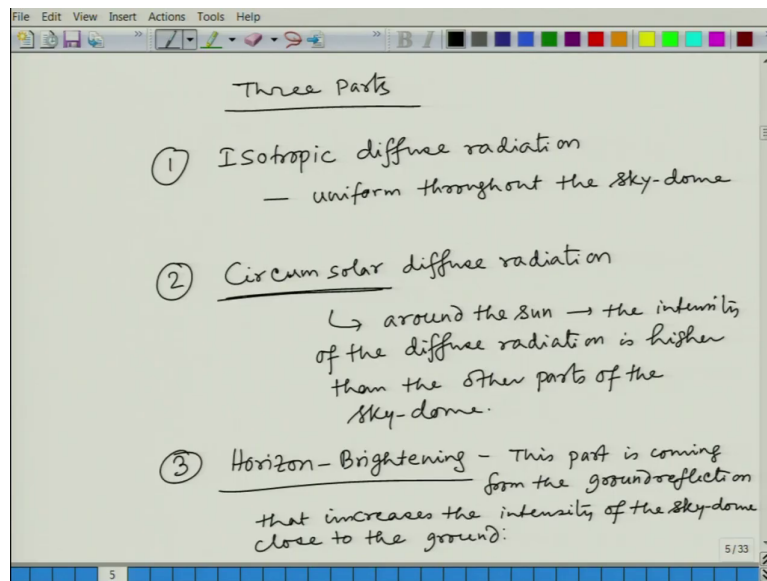 File Edit View Insert Actions Tools Help
B I
Three Parts
1 Isotropic diffuse radiation
— uniform throughout the sky-dome
2 Circumsolar diffuse radiation
↳ around the sun → the intensity
of the diffuse radiation is higher
than the other parts of the
sky-dome.
3 Horizon-Brightening - This part is coming
from the ground reflection
that increases the intensity of the sky-dome
close to the ground:
5/33
5